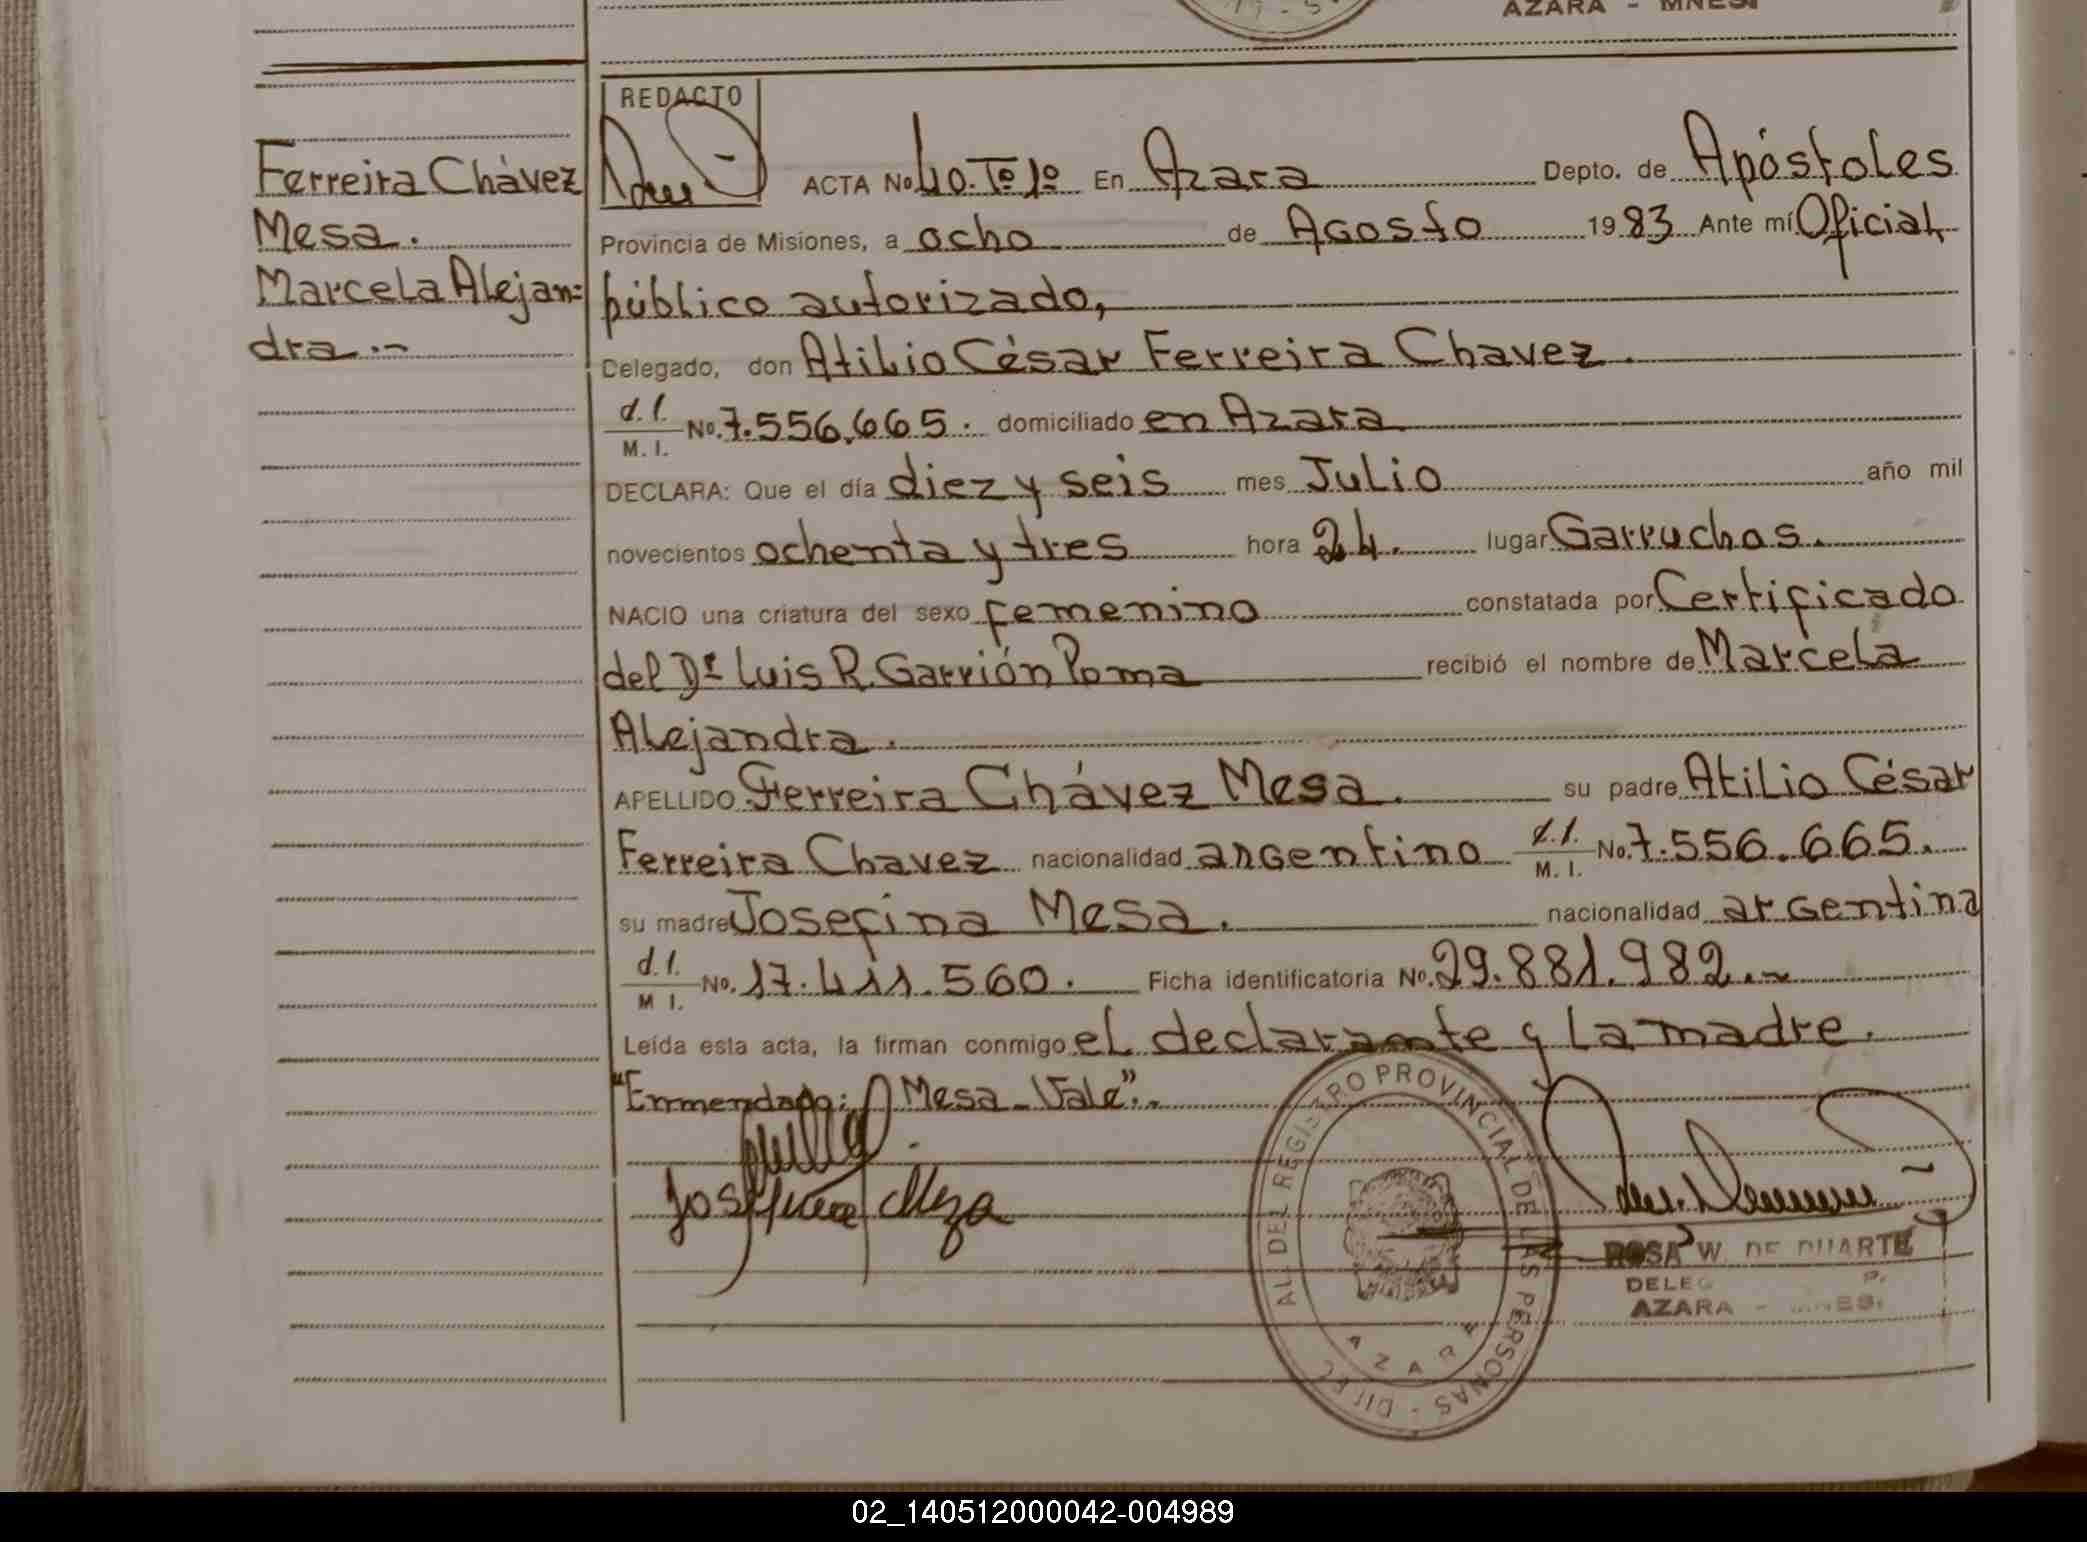 AZARA - MNES.
REDACTO
Ferreira Chávez
Mesa.
Marcela Alejan=
dra.-
ACTA No. 40. Tº 1º En Azara Depto. de Apóstoles
Provincia de Misiones, a ocho de Agosto 1983 Ante mí Oficial
público autorizado,
Delegado, don Atilio César Ferreira Chavez.
d.I. M. I. No. 7.556.665. domiciliado en Azara
DECLARA: Que el día diez y seis mes Julio año mil
novecientos ochenta y tres hora 24. lugar Garruchos.
NACIO una criatura del sexo femenino constatada por Certificado
del Dr Luis R. Garrión Poma recibió el nombre de Marcela
Alejandra.
APELLIDO Ferreira Chávez Mesa. su padre Atilio César
Ferreira Chavez nacionalidad argentino d.I. M. I. No. 7.556.665.
su madre Josefina Mesa. nacionalidad argentina
d.I. M I. No. 17.411.560. Ficha identificatoria No. 29.881.982.-
Leída esta acta, la firman conmigo el declarante y la madre.
"Enmendado: Mesa - Vale".-
Josefina Meza
AL DEL REGISTRO PROVINCIAL DE LAS PERSONAS -
AZARA
ROSA W. DE DUARTE
AZARA - MNES.
02_140512000042-004989